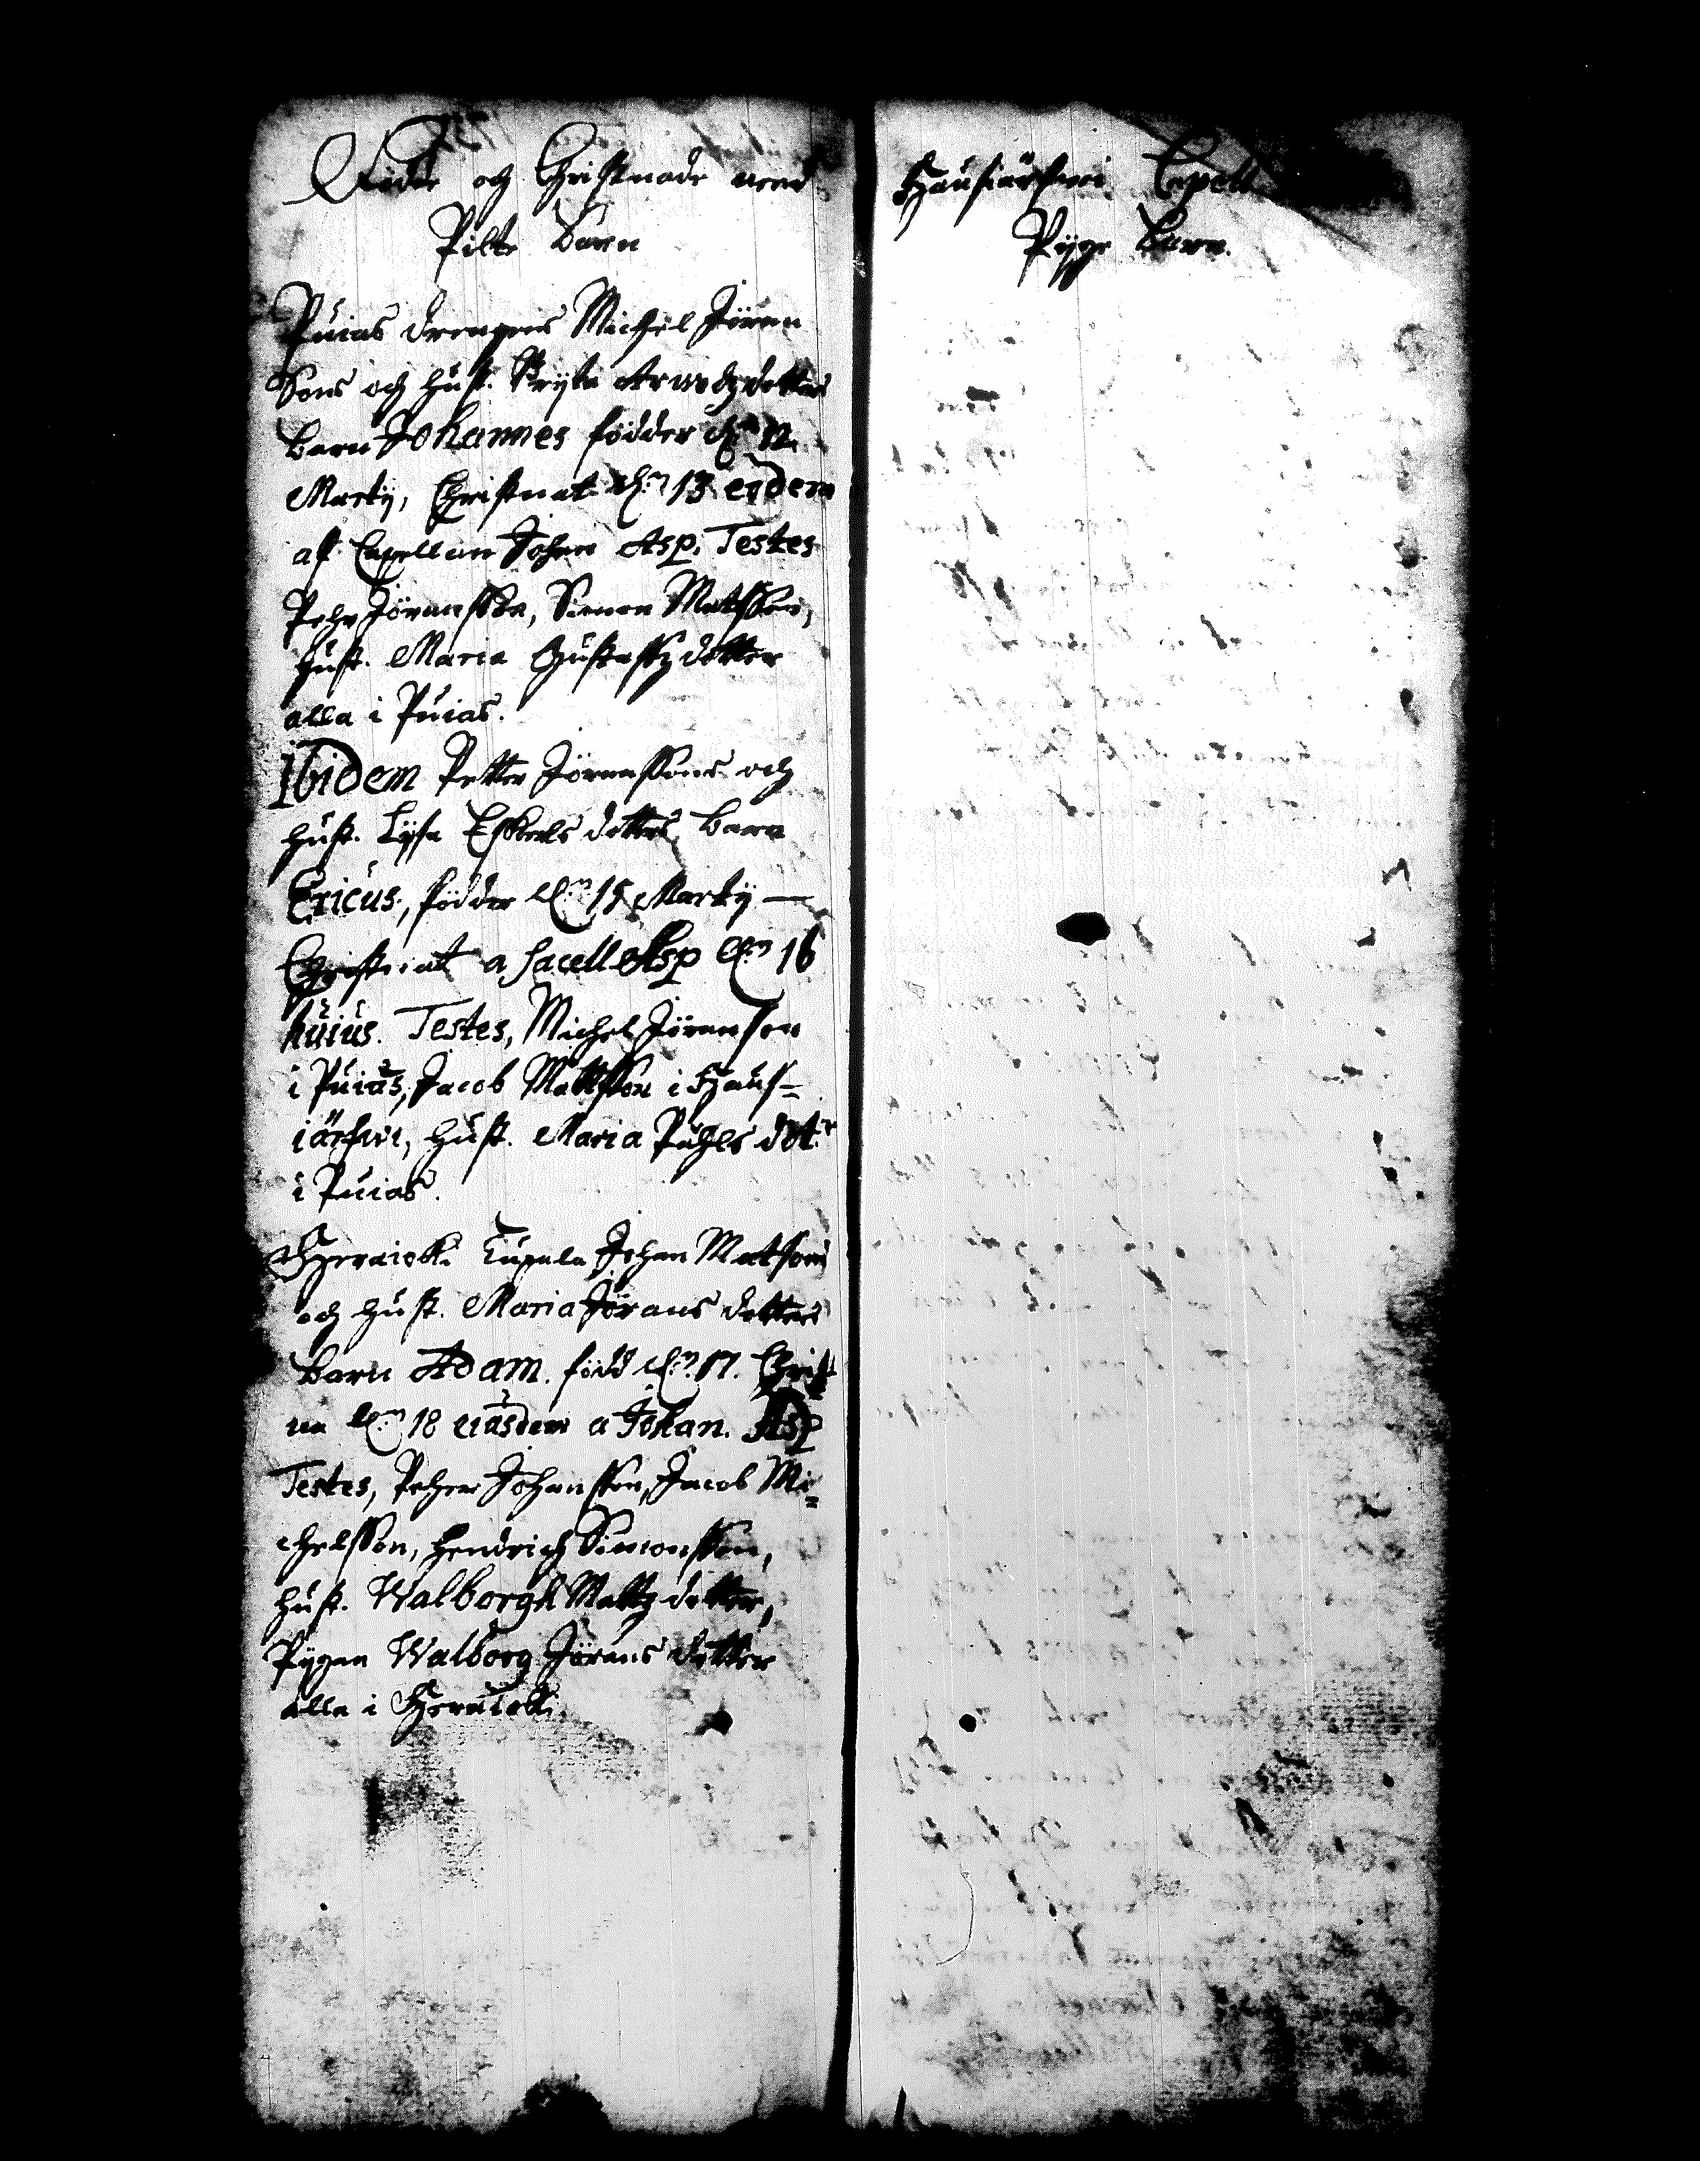 Födde och Christnade med
Pilte barn
Puias drengens Michel Jöran
Sons och hust. Bryta Arwedz dotters
barn Johannes födder d. 12
Marty, Christnat d. 13 eiusdem
af Capellan Johan Asp. Testes
Pehr Jöransson, Simon Matsson,
hust. Maria Gustafz dotter
alla i Puias.
Ibidem Petter Jöranssons och
hust. Lysa Eskels dotters barn
Ericus, födder d. 15 Marty —
Christnat a Sacell. Asp d. 16
huius. Testes, Michel Jöranson
i Puias, Jacob Mattsson i Haus-
järfwi, hust. Maria Påhls dot.r
i Puias.
Herajoki Tupala Johan Matsons
och hust. Maria Jörans dotters
barn Adam. född d. 17. Christ
na d. 18 eiusdem a Johan. Asp
Testes, Peher Johansson, Jacob Mi-
chelsson, Hendrich Simonsson,
hust. Walborgh Mattz dotter,
Pygan Walborg Jörans dotter
alla i Herajoki.
Hausjärfwi Capell
Pyge barn.